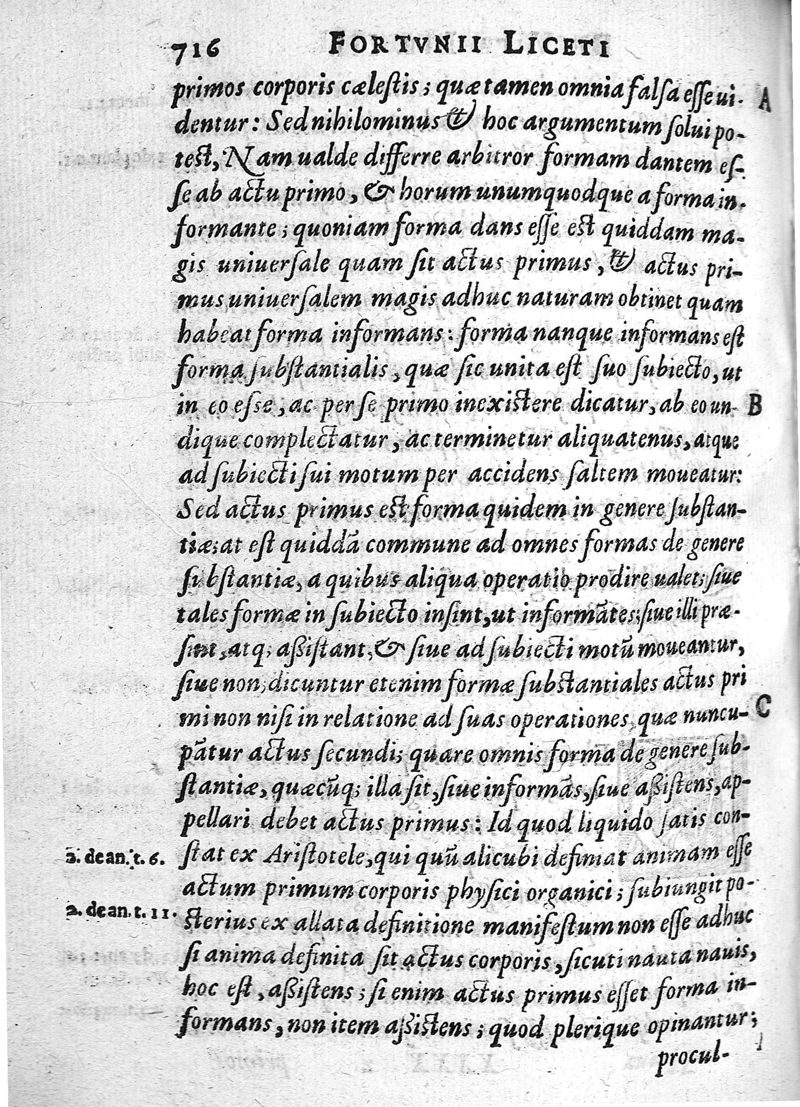 716 FORTVNII LICETI
primos corporis cælestis; quæ tamen omnia falsa esse ui- A
dentur: Sed nihilominus & hoc argumentum solui po-
test, Nam ualde differre arbitror formam dantem es-
se ab actu primo, & horum unumquodque a forma in-
formante; quoniam forma dans esse est quiddam ma-
gis uniuersale quam sit actus primus, & actus pri-
mus uniuersalem magis adhuc naturam obtinet quam
habeat forma informans: forma nanque informans est
forma substantialis, quæ sic unita est suo subiecto, ut
in eo esse, ac per se primo inexistere dicatur, ab eo un- B
dique complectatur, ac terminetur aliquatenus, atque
ad subiecti sui motum per accidens saltem moueatur:
Sed actus primus est forma quidem in genere substan-
tiæ; at est quiddā commune ad omnes formas de genere
substantiæ, a quibus aliqua operatio prodire ualet; siue
tales formæ in subiecto insint, ut informātes; siue illi præ-
sint, atq; assistant, & siue ad subiecti motū moueantur,
siue non; dicuntur etenim formæ substantiales actus pri
mi non nisi in relatione ad suas operationes, quæ nuncu- C
pātur actus secundi; quare omnis forma de genere sub-
stantiæ, quæcūq; illa sit, siue informās, siue assistens, ap-
pellari debet actus primus: Id quod liquido satis con-
2. de an. t. 6. stat ex Aristotele, qui quū alicubi definiat animam esse
actum primum corporis physici organici; subiungit po-
2. de an. t. 11. sterius ex allata definitione manifestum non esse adhuc
si anima definita sit actus corporis, sicuti nauta nauis,
hoc est, assistens; si enim actus primus esset forma in-
formans, non item assistens; quod plerique opinantur;
procul-